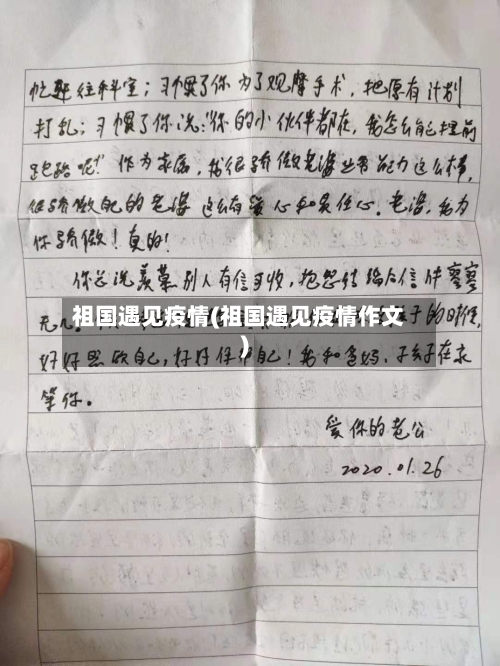 忙赶往科室；习惯了你为了观摩手术，把原有计划
打乱；习惯了你说：“你的小伙伴都在，我怎么自己提前
跑路呢！”作为家属，我很骄傲老婆业务能力这么棒，
很骄傲自己的老婆这么有爱心和责任心。老婆，我为
你骄傲！真的！
你总说羡慕别人有信可收，抱怨结婚后信件寥寥
无几。 子的时候，
祖国遇见疫情(祖国遇见疫情作文
)
好好照顾自己，好好保护自己！我和爸妈、子在家
等你。
爱你的老公
2020.01.26